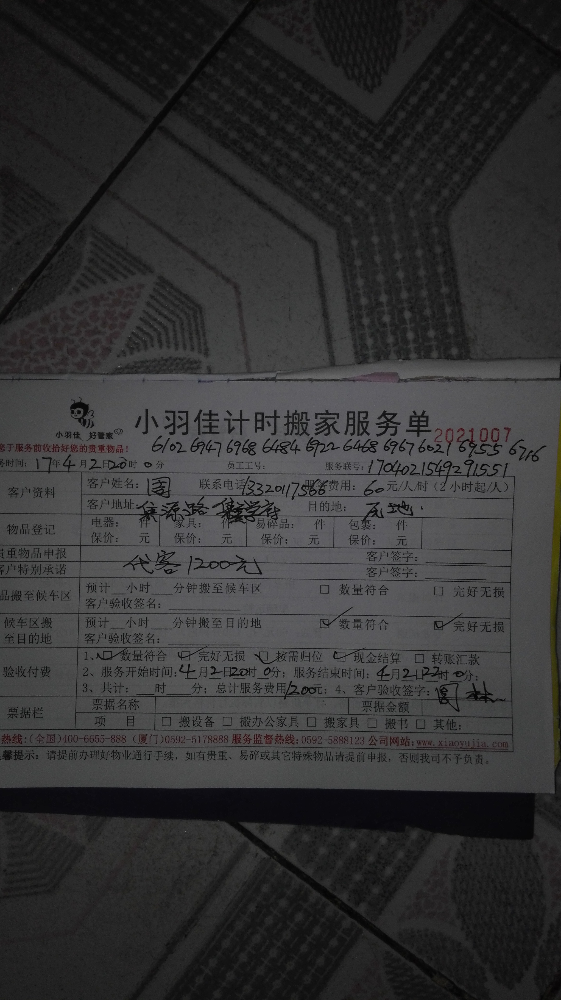 小羽佳 好管家
小羽佳计时搬家服务单 2021007
于服务前收拾好您的贵重物品!
6102 6947 6968 6484 6922 6468 6967 6021 6955 6716
务时间: 17年4月2日20时0分 员工工号: 服务联号: 170402154929 1551
客户资料 客户姓名: 联系电话: 13320117566 服务费用: 60元/人/时(2小时起/人)
客户地址: 目的地:
物品登记 电器: 件 家具: 件 易碎品: 件 包裹: 件
保价: 元 保价: 元 保价: 元 保价: 元
贵重物品申报 客户签字:
客户特别承诺 代客1200元 客户签字:
品搬至候车区 预计 小时 分钟搬至候车区 □ 数量符合 □ 完好无损
客户验收签名:
候车区搬至目的地 预计 小时 分钟搬至目的地 ☑ 数量符合 ☑ 完好无损
客户验收签名:
验收付费 1、☑ 数量符合 ☑ 完好无损 ☑ 按需归位 ☑ 现金结算 □ 转账汇款
2、服务开始时间: 4月2日20时0分; 服务结束时间: 4月2日22时0分;
3、共计: 时 分; 总计服务费用1200元; 4、客户验收签字:
票据栏 票据名称 票据金额
项 目 □ 搬设备 □ 搬办公家具 □ 搬家具 □ 搬书 □ 其他:
热线:(全国)400-6655-888 (厦门)0592-5178888 服务监督热线:0592-5888123 公司网站:www.xiaoyujia.com
温馨提示: 请提前办理好物业通行手续,如有贵重、易碎或其它特殊物品请提前申报,否则我司不予负责。